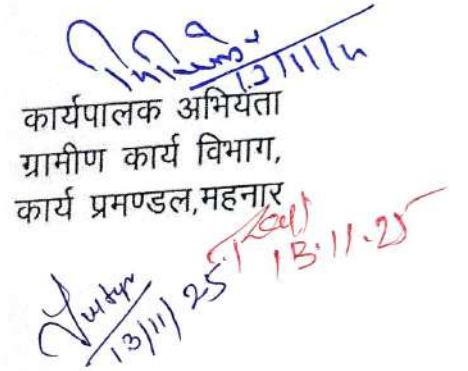 13/11/25
कार्यपालक अभियंता
ग्रामीण कार्य विभाग,
कार्य प्रमण्डल,महनार
13.11.25
13/11/25